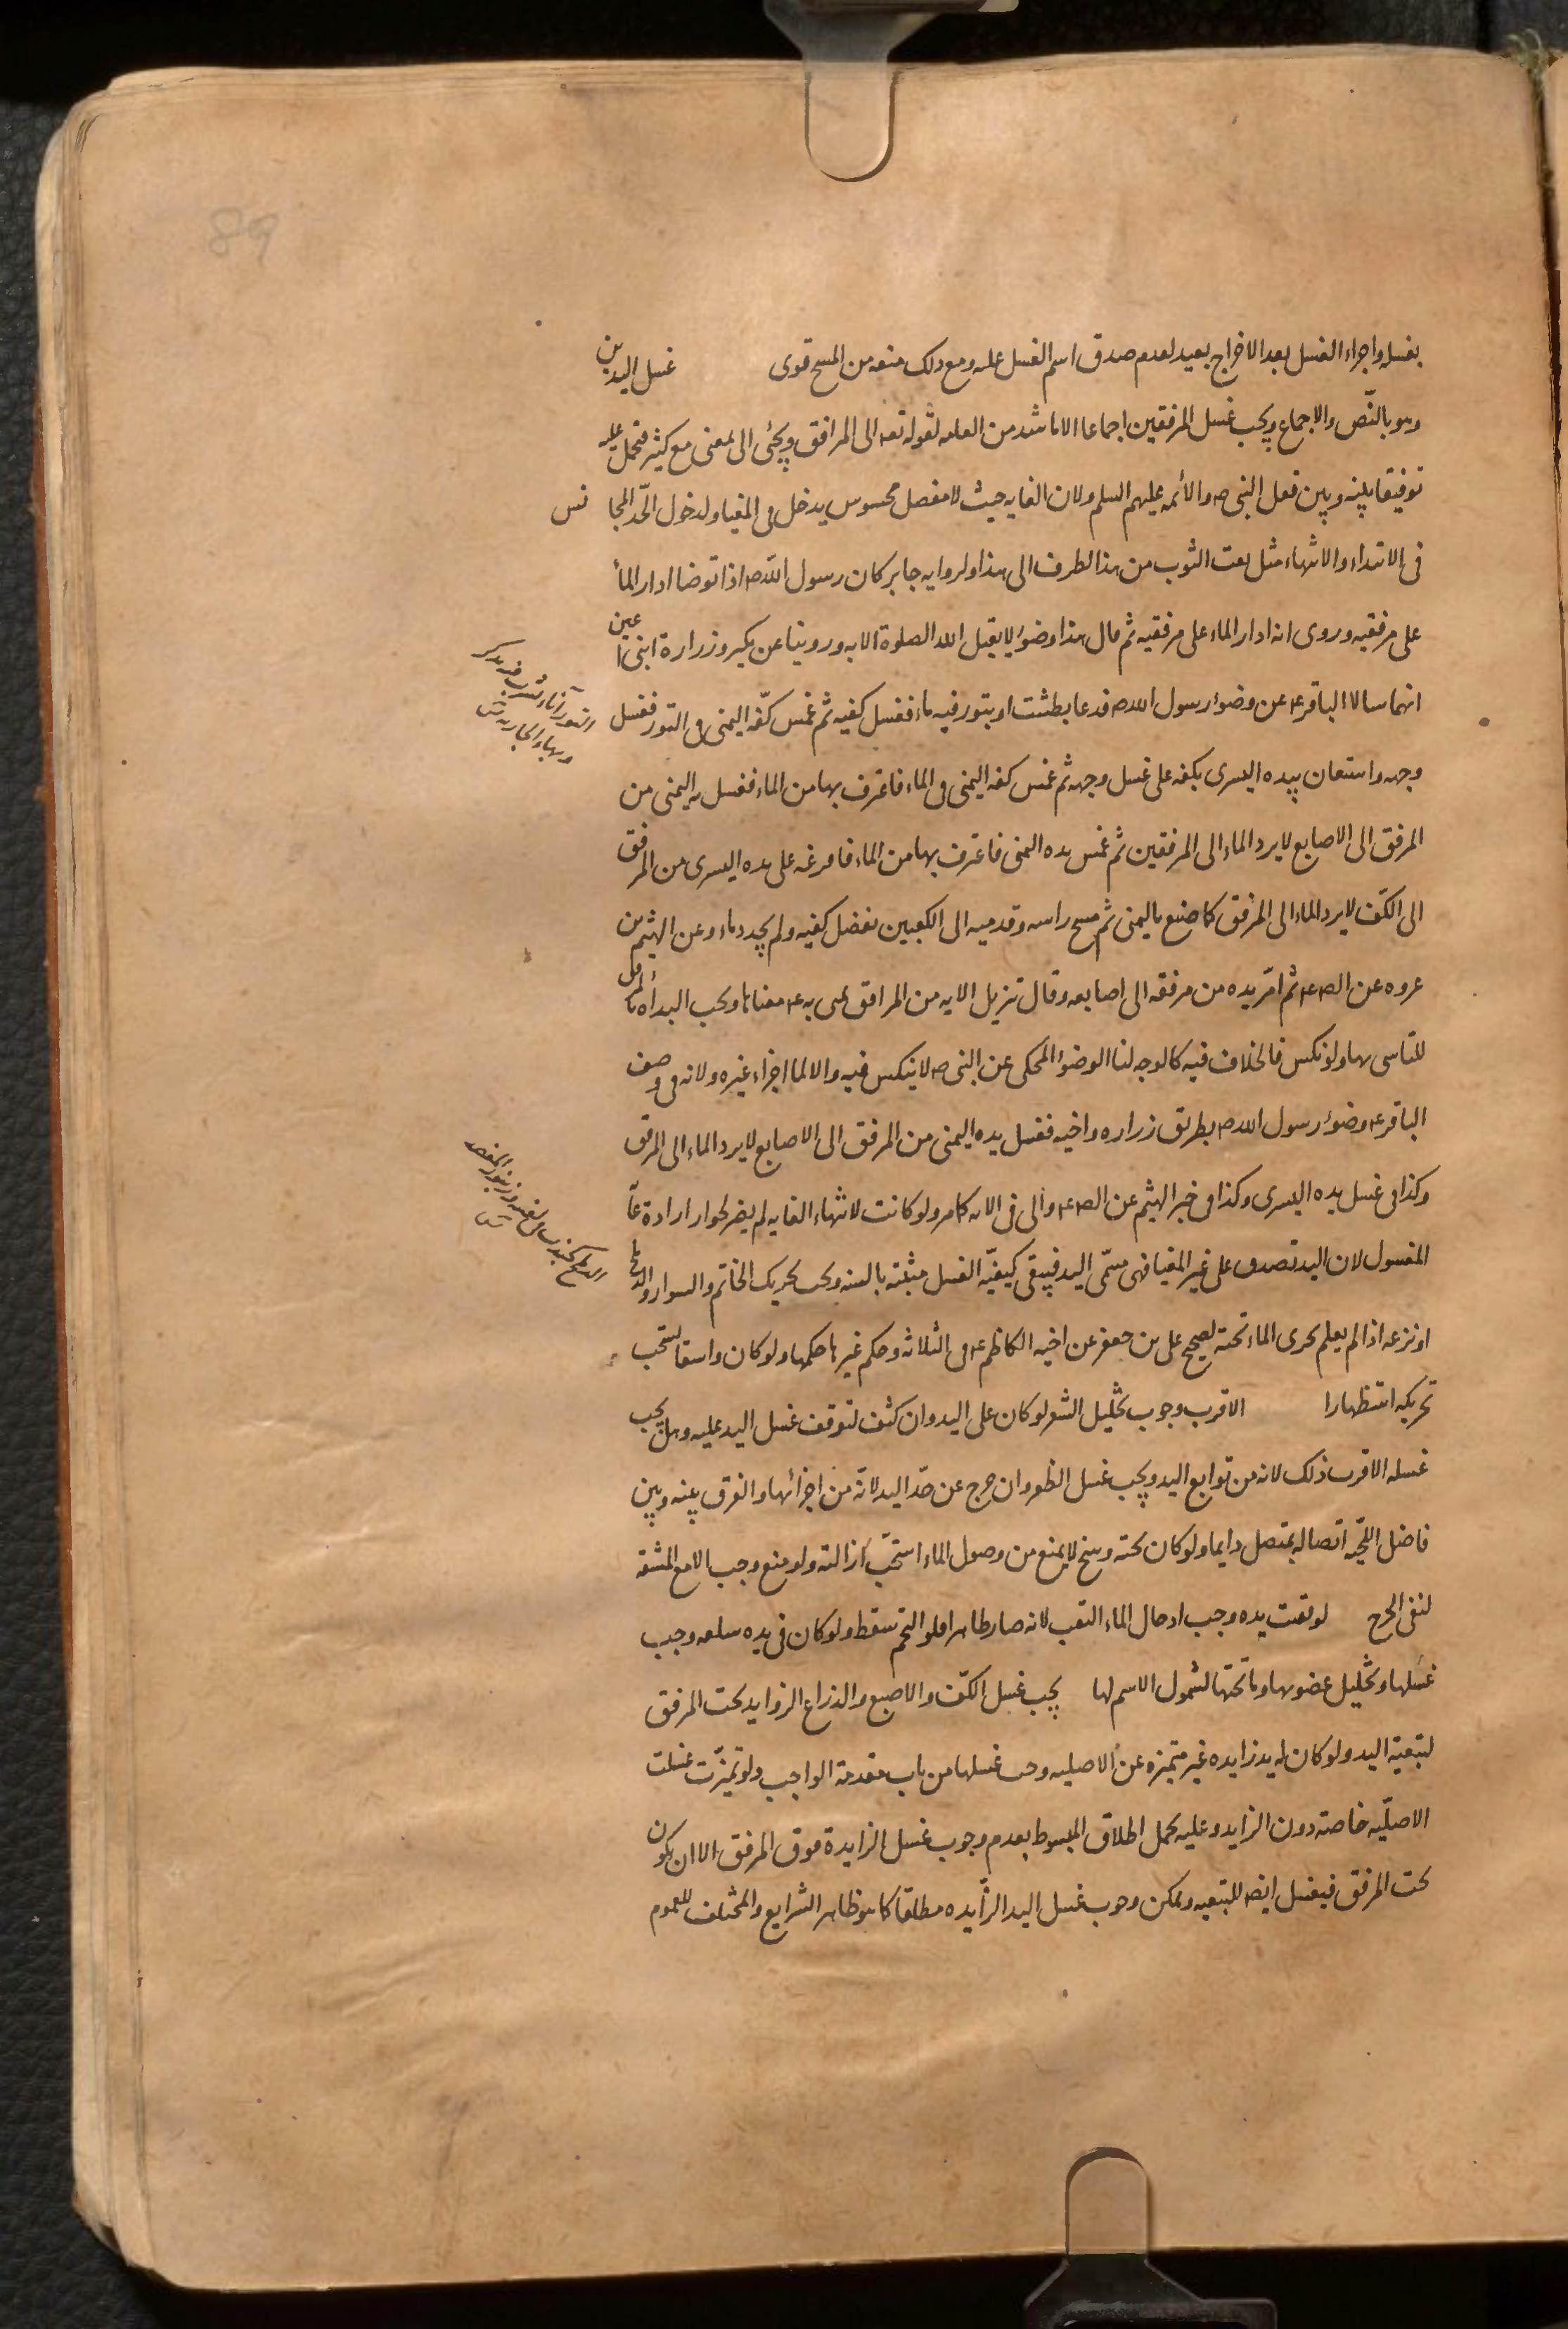 89
بغسله واجراء الغسل بعد الاخراج بعيد لعدم صدق اسم الغسل عليه ومع ذلك منعه من المسح قوى غسل اليدين
وهو بالنّص والاجماع ويجب غسل المرفقين اجماعا الا ما شذ من العامه لقوله تعه الى المرافق ويجئ الى بمعنى مع كثير فتحمل عليه
توفيقا بينه وبين فعل النبى ص والأئمه عليهم السلم ولان الغايه حيث لا مفصل محسوس يدخل فى المغيا ولدخول الحّد المجا نس
فى الابتداء والانتهاء مثل بعت الثوب من هذا الطرف الى هذا ولروايه جابر كان رسول اللّه ص اذا توضا ادار الماء
على مرفقيه وروى انه ادار الماء على مرفقيه ثم قال هذا وضوء لا يقبل الله الصلوة الا به وروينا عن بكير وزرارة ابنى اعين
انهما سالا الباقر ع عن وضوء رسول الله ص فدعا بطشت او بتور فيه ماء فغسل كفيه ثم غمس كفّه اليمنى فى التور فغسل
وجهه واستعان بيده اليسرى بكفه على غسل وجهه ثم غمس كفه اليمنى فى الماء فاغترف بها من الماء فغسل يده اليمنى من
المرفق الى الاصابع لا يرد الماء الى المرفقين ثم غمس يده اليمنى فاغترف بها من الماء فافرغه على يده اليسرى من المرفق
الى الكفّ لا يرد الماء الى المرفق كما صنع باليمنى ثم مسح راسه وقدميه الى الكعبين بفضل كفيه ولم يجدد ماء وعن الهيثم بن
عروه عن الص ع ثم امّر يده من مرفقه الى اصابعه وقال تنزيل الايه من المرافق عنى به ع معناها ويجب البدأه بالمرفق
للتاسى بها ولو نكس فالخلاف فيه كالوجه لنا الوضوء المحكى عن النبى ص لا ينكس فيه والا لما اجزاء غيره ولانه فى وصف
الباقر ع وضوء رسول الله ص بطريق زراره واخيه فغسل يده اليمنى من المرفق الى الاصابع لا يرد الماء الى المرفق
وكذا فى غسل يده اليسرى وكذا فى خبر الهيثم عن الص ع والى فى الايه كما مر ولو كانت لانتهاء الغايه لم يضر لجواز ارادة غاية
المغسول لان اليد تصدق على غير المغيا فهى مسمّى اليد فيبقى كيفيّه الغسل مبيّنه بالسنه ويجب تحريك الخاتم والسوار والدملج
او نزعه اذا لم يعلم جرى الماء تحته لصحيح على بن جعفر عن اخيه الكاظم ع فى الثلاثه وحكم غيرها حكمها ولو كان واسعا استحب
تحريكه استظهارا الاقرب وجوب تخليل الشعر لو كان على اليد وان كثف لتوقف غسل اليد عليه وهل يجب
غسله الاقرب ذلك لانه من توابع اليد ويجب غسل الظفر وان خرج عن حدّ اليد لانّه من اجزائها والفرق بينه وبين
فاضل اللحّيه اتصاله بمتصل دايما ولو كان تحته وسخ لا يمنع من وصول الماء استحّب ازالته ولو منع وجب الا مع المشقه
لنفى الحرج لو ثقبت يده وجب ادخال الماء الثقب لانه صار ظاهرا فلو التحم سقط ولو كان فى يده سلعه وجب
غسلها وتخليل غضونها وما تحتها لشمول الاسم لها يجب غسل الكفّ والاصبع والذراع الزوايد تحت المرفق
لتبعيّة اليد ولو كان له يد زايده غير متميزه عن الاصليه وجب غسلها من باب مقدمة الواجب ولو تميّزت غسلت
الاصليّه خاصّه دون الزايد وعليه يحمل اطلاق المبسوط بعدم وجوب غسل الزايدة فوق المرفق الا ان يكون
تحت المرفق فيغسل ايضا للتبعيه ويمكن وجوب غسل اليد الزّايده مطلقا كما هو ظاهر الشرايع والمختلف للعموم